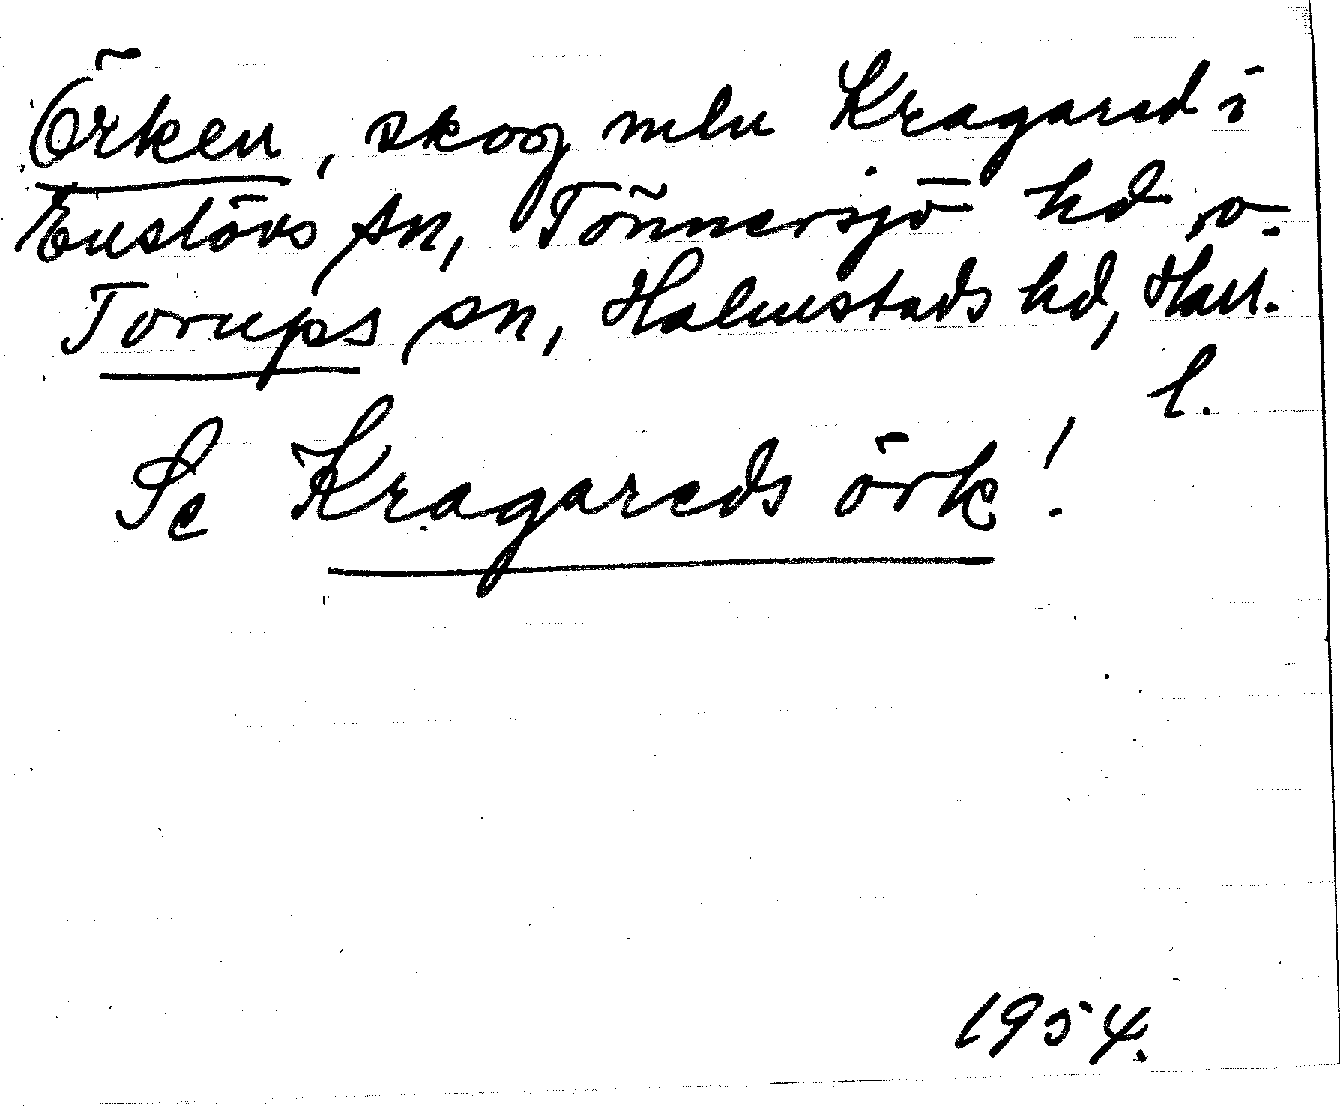 Örken, skog mln Kragared i
Enslövs sn, Tönnersjö hd, o.
Torups sn, Halmstads hd, Hall.
l.
Se Kragareds örk!
1954.